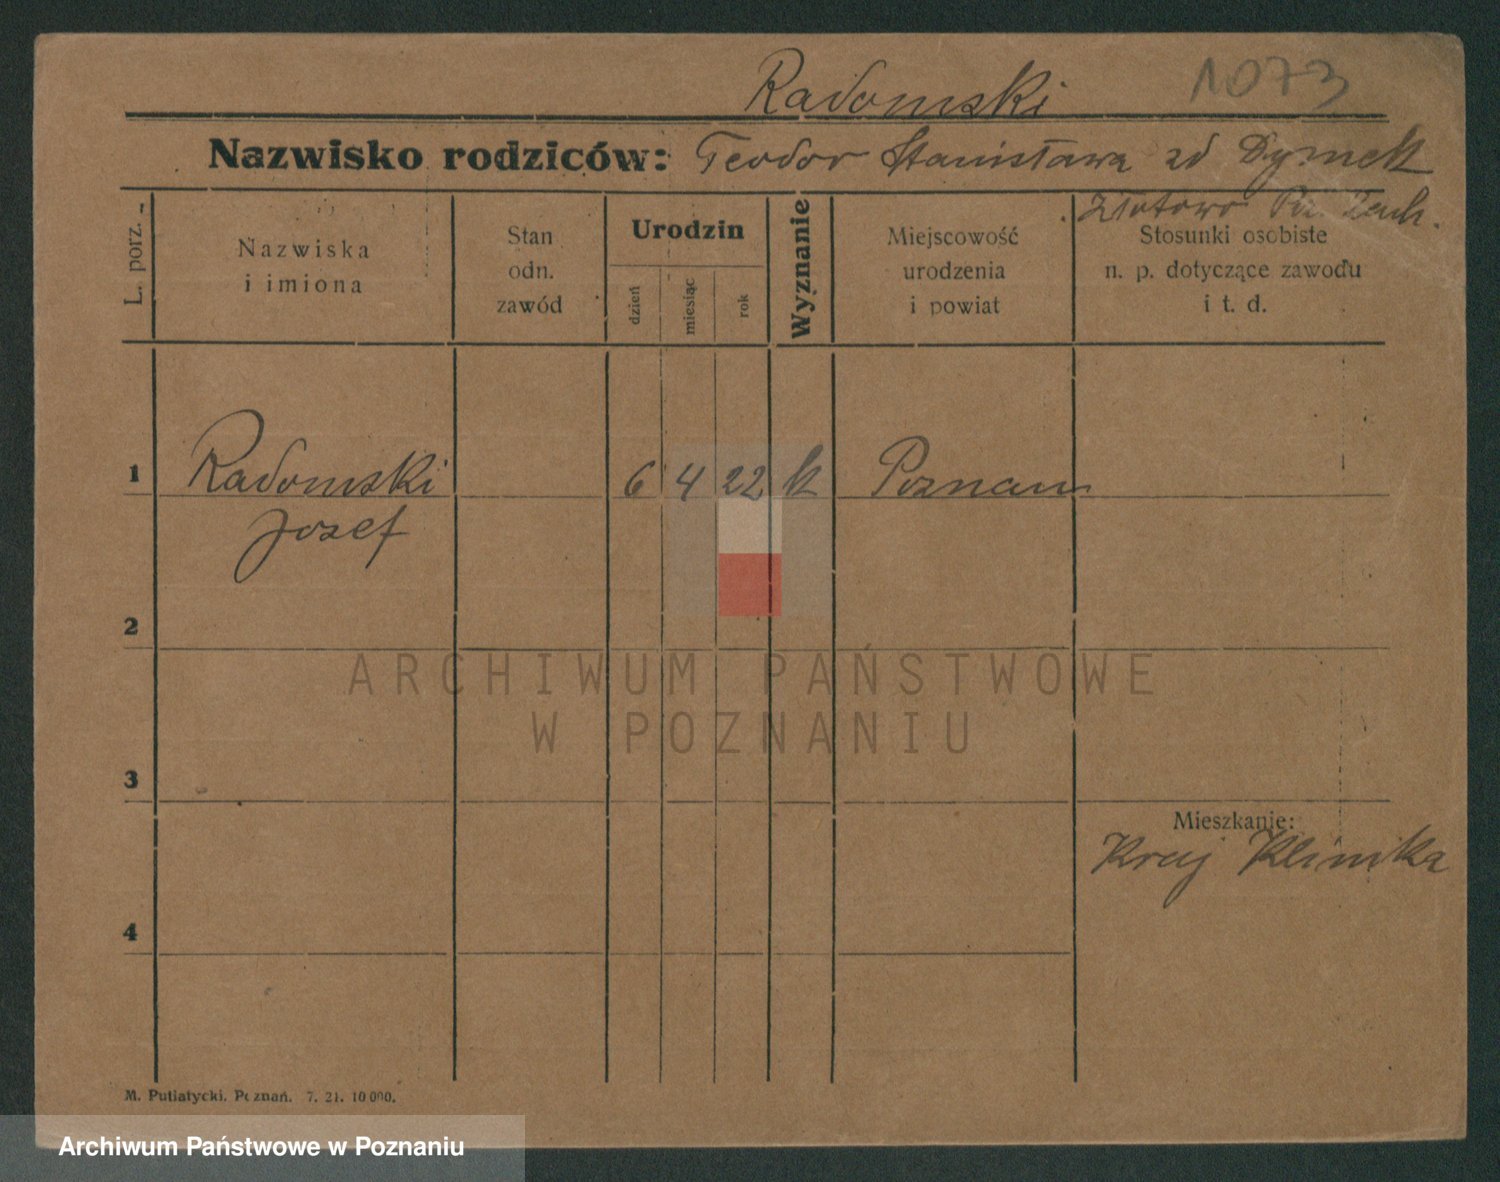 Radomski 1073
Nazwisko rodziców: Teodor Stanisława zd Dymek
Złotowo
L. porz.
Nazwiska
i imiona
Stan
odn.
zawód
Urodzin
dzień
miesiąc
rok
Wyznanie
Miejscowość
urodzenia
i powiat
Stosunki osobiste
n. p. dotyczące zawodu
i t. d.
1 Radomski 6 4 22 k Poznań
Jozef
2
ARCHIWUM PAŃSTWOWE
W POZNANIU
3
Mieszkanie:
Kraj Klinika
4
M. Putiatycki, Poznań. 7. 21. 10 000.
Archiwum Państwowe w Poznaniu